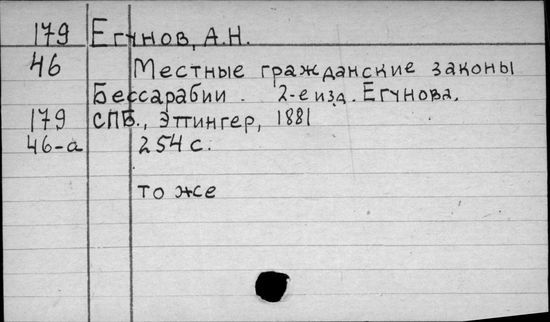 179 Егунов, А.Н.
46 Местные гражданские законы
Бессарабии. 2-е изд. Егунова.
179 СПБ., Эттингер, 1881
46-а 254 с.
то же